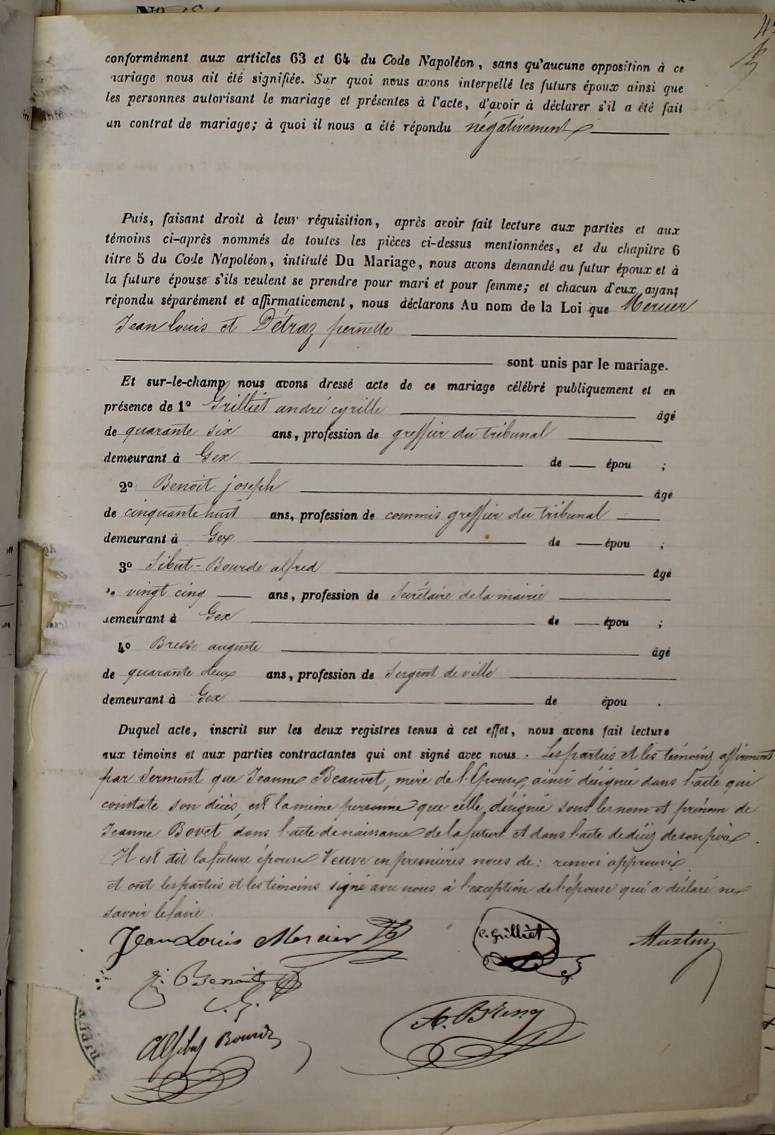 conformément aux articles 63 et 64 du Code Napoléon, sans qu'aucune opposition à ce
mariage nous ait été signifiée. Sur quoi nous avons interpellé les futurs époux ainsi que
les personnes autorisant le mariage et présentes à l'acte, d'avoir à déclarer s'il a été fait
un contrat de mariage; à quoi il nous a été répondu négativement
Puis, faisant droit à leur réquisition, après avoir fait lecture aux parties et aux
témoins ci-après nommés de toutes les pièces ci-dessus mentionnées, et du chapitre 6
titre 5 du Code Napoléon, intitulé Du Mariage, nous avons demandé au futur époux et à
la future épouse s'ils veulent se prendre pour mari et pour femme; et chacun d'eux ayant
répondu séparément et affirmativement, nous déclarons Au nom de la Loi que Mercier
Jean Louis et Détraz pernette
sont unis par le mariage.
Et sur-le-champ nous avons dressé acte de ce mariage célébré publiquement et en
présence de 1º Grilliet andré cyrille âgé
de quarante six ans, profession de greffier du tribunal
demeurant à Gex de épou ;
2º Benoit joseph âgé
de cinquante huit ans, profession de commis greffier du tribunal
demeurant à Gex de épou ;
3º Sibut-Bourde alfred âgé
vingt cinq ans, profession de Secrétaire de la mairie
demeurant à Gex de épou ;
4º Bresse auguste âgé
de quarante deux ans, profession de Sergent de ville
demeurant à Gex de épou .
Duquel acte, inscrit sur les deux registres tenus à cet effet, nous avons fait lecture
aux témoins et aux parties contractantes qui ont signé avec nous. Les parties et les témoins affirment
par Serment que Jeanne Beauvet, mère de l'Epouse, ainsi désignée dans l'acte qui
constate son décès, est la même personne que celle désignée sous les nom et prénom de
Jeanne Bovet dans l'acte de naissance de la future et dans l'acte de décès de son père.
Il est dit la future épouse Veuve en premières noces de: renvoi approuvé
et ont les parties et les témoins signé avec nous à l'exception de l'épouse qui a déclaré ne
savoir le faire.
Jean Louis Mercier
C. Grilliet
J. Benoit